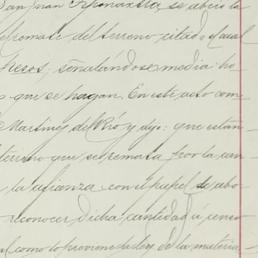 San Juan se abrió la
remate del terreno citado cual
Pesos, señalándose media ho
que se hagan. En este acto com
Martínez del Río y dijo: que están
terreno que se remata por la can
la afianza con el papel de abo
reconocer dicha cantidad á censo
como lo previene la ley de la materia